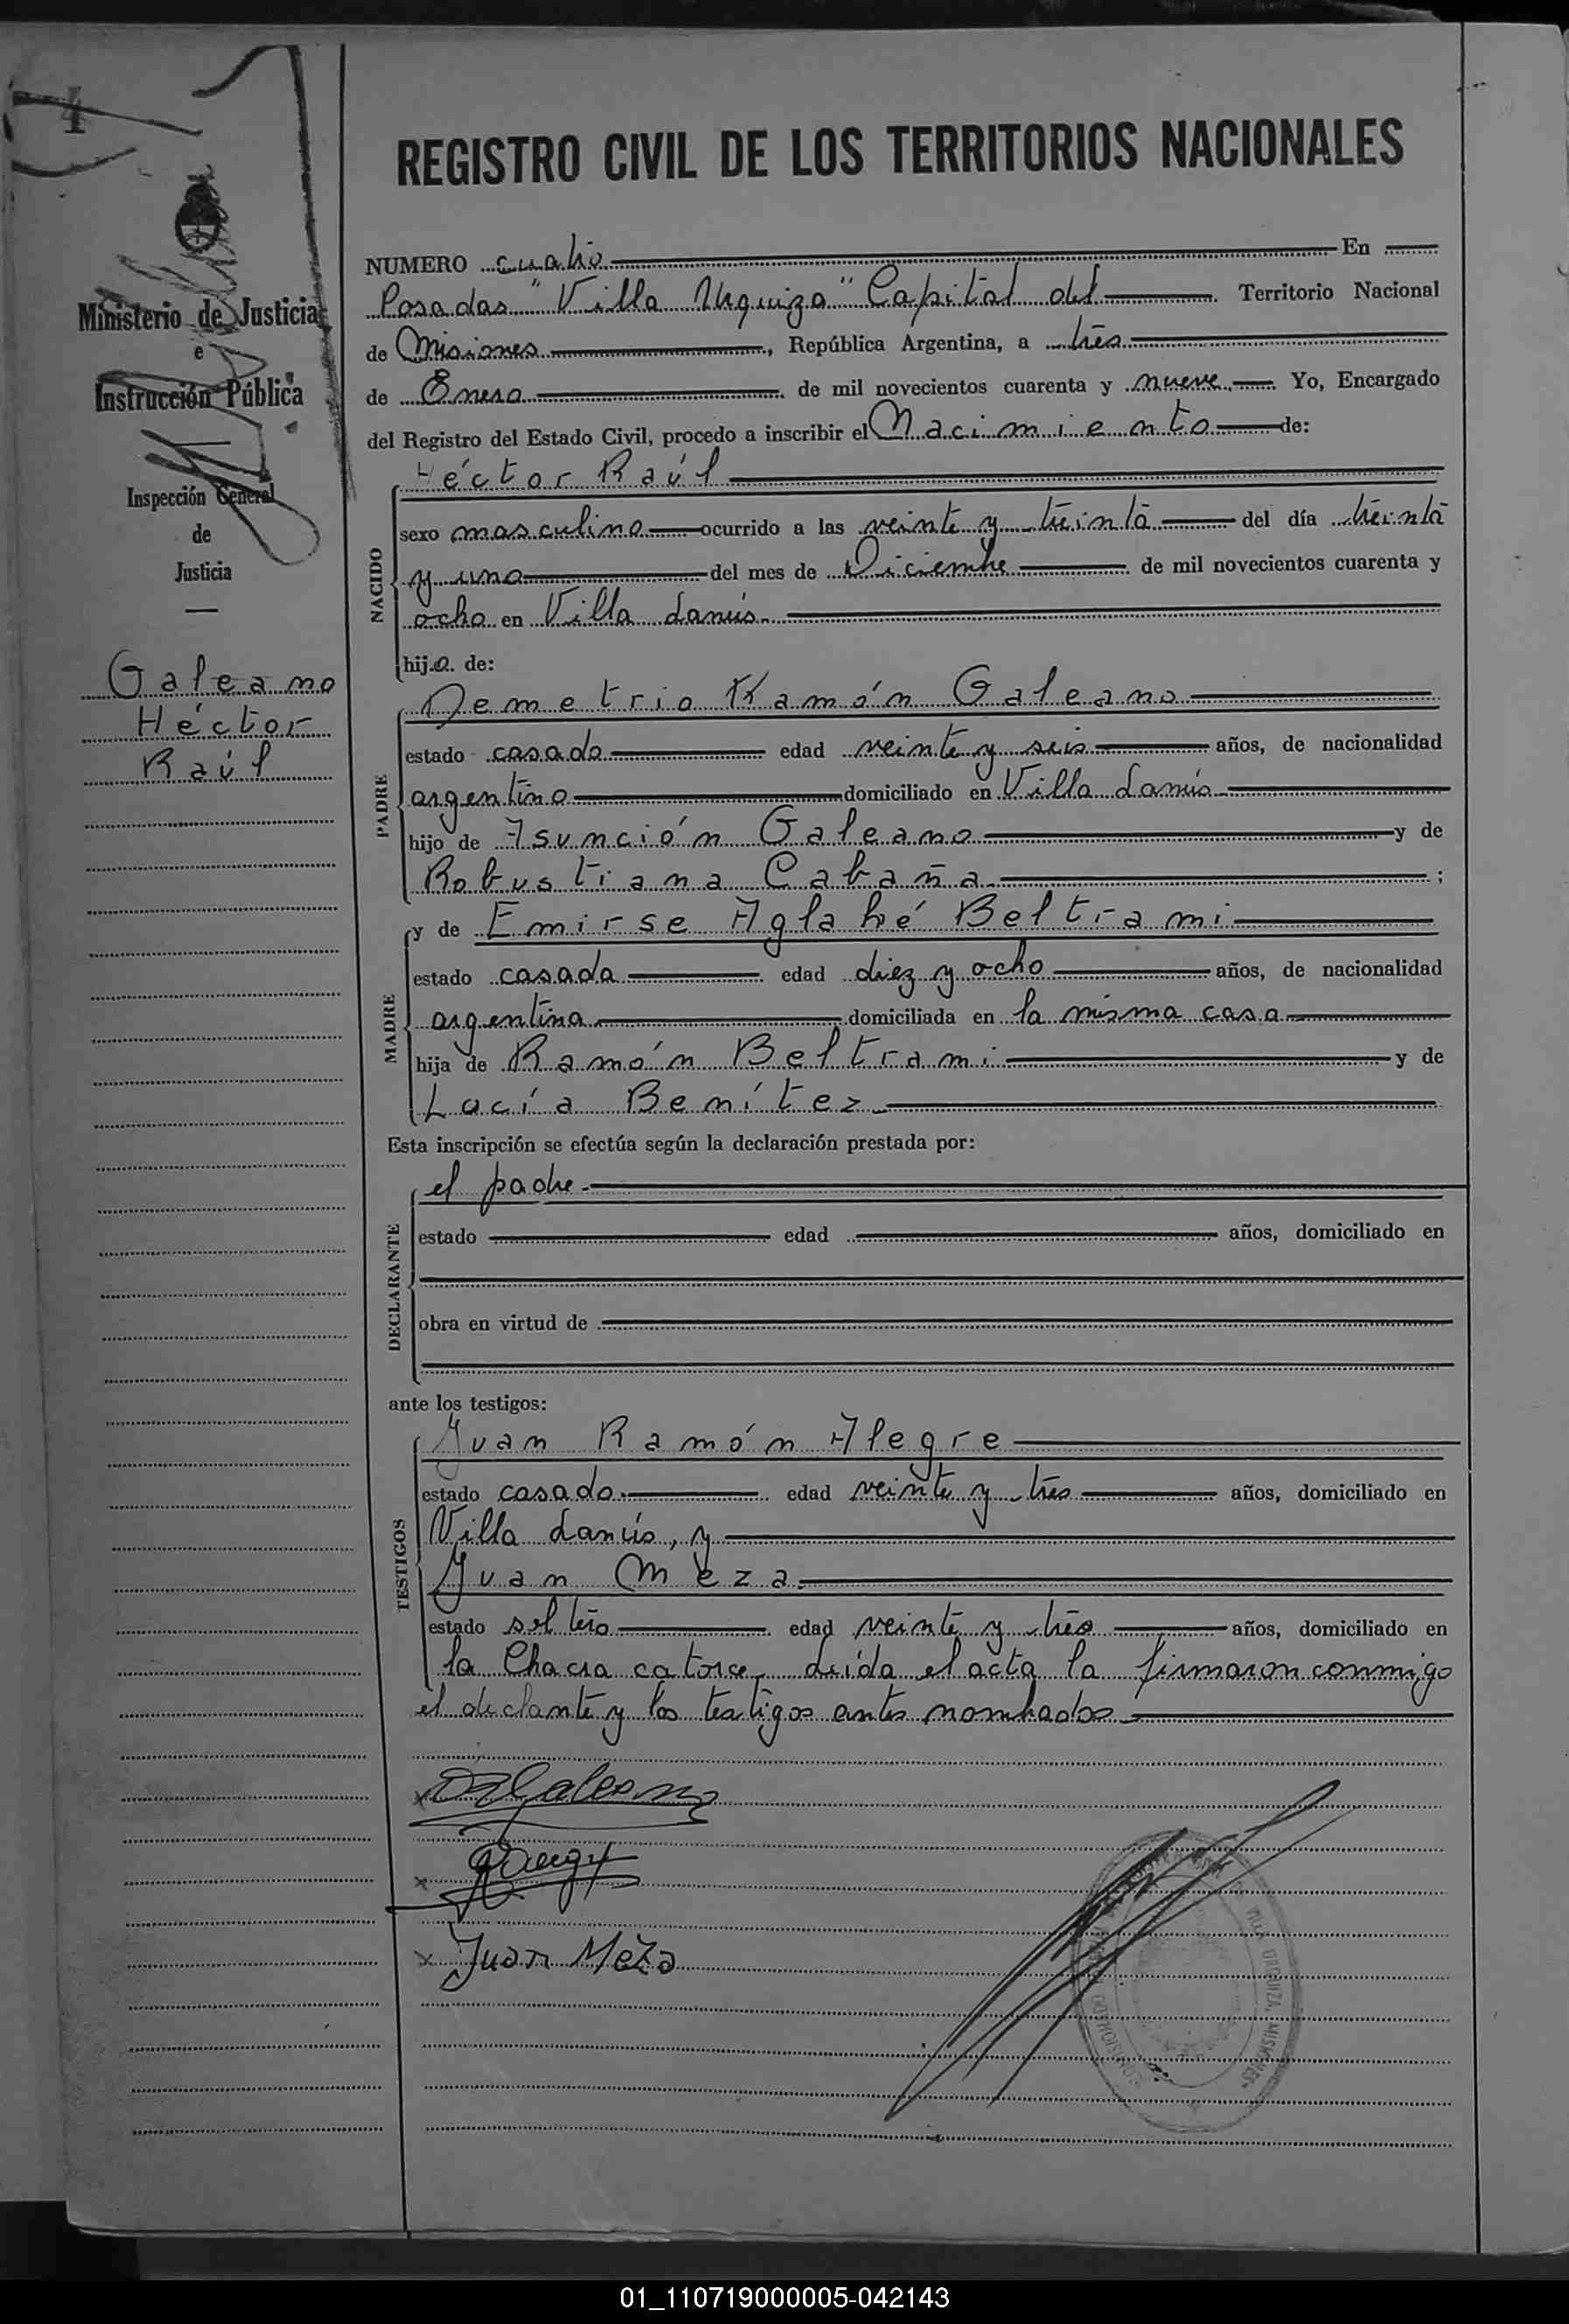 4
REGISTRO CIVIL DE LOS TERRITORIOS NACIONALES
Ministerio de Justicia
e
Instrucción Pública
Inspección General
de
Justicia
Galeano
Héctor
Raúl
NUMERO cuatro En
Posadas "Villa Urquiza" Capital del Territorio Nacional
de Misiones, República Argentina, a tres
de Enero de mil novecientos cuarenta y nueve Yo, Encargado
del Registro del Estado Civil, procedo a inscribir el Nacimiento de:
NACIDO
Héctor Raúl
sexo masculino ocurrido a las veinte y treinta del día treinta
y uno del mes de Diciembre de mil novecientos cuarenta y
ocho en Villa Lanús.
hijo de:
PADRE
Demetrio Ramón Galeano
estado casado edad veinte y seis años, de nacionalidad
argentino domiciliado en Villa Lanús
hijo de Asunción Galeano y de
Robustiana Cabaña ;
MADRE
y de Emirse Aglahé Beltrami
estado casada edad diez y ocho años, de nacionalidad
argentina domiciliada en la misma casa
hija de Ramón Beltrami y de
Lucía Benítez
Esta inscripción se efectúa según la declaración prestada por:
DECLARANTE
el padre
estado edad años, domiciliado en
obra en virtud de
ante los testigos:
TESTIGOS
Juan Ramón Alegre
estado casado edad veinte y tres años, domiciliado en
Villa Lanús, y
Juan Meza
estado soltero edad veinte y tres años, domiciliado en
la Chacra catorce. Leída el acta la firmaron conmigo
el declante y los testigos antes nombrados
x DRGaleano
x
x Juan Meza
VILLA URQUIZA, MISIONES
01_110719000005-042143